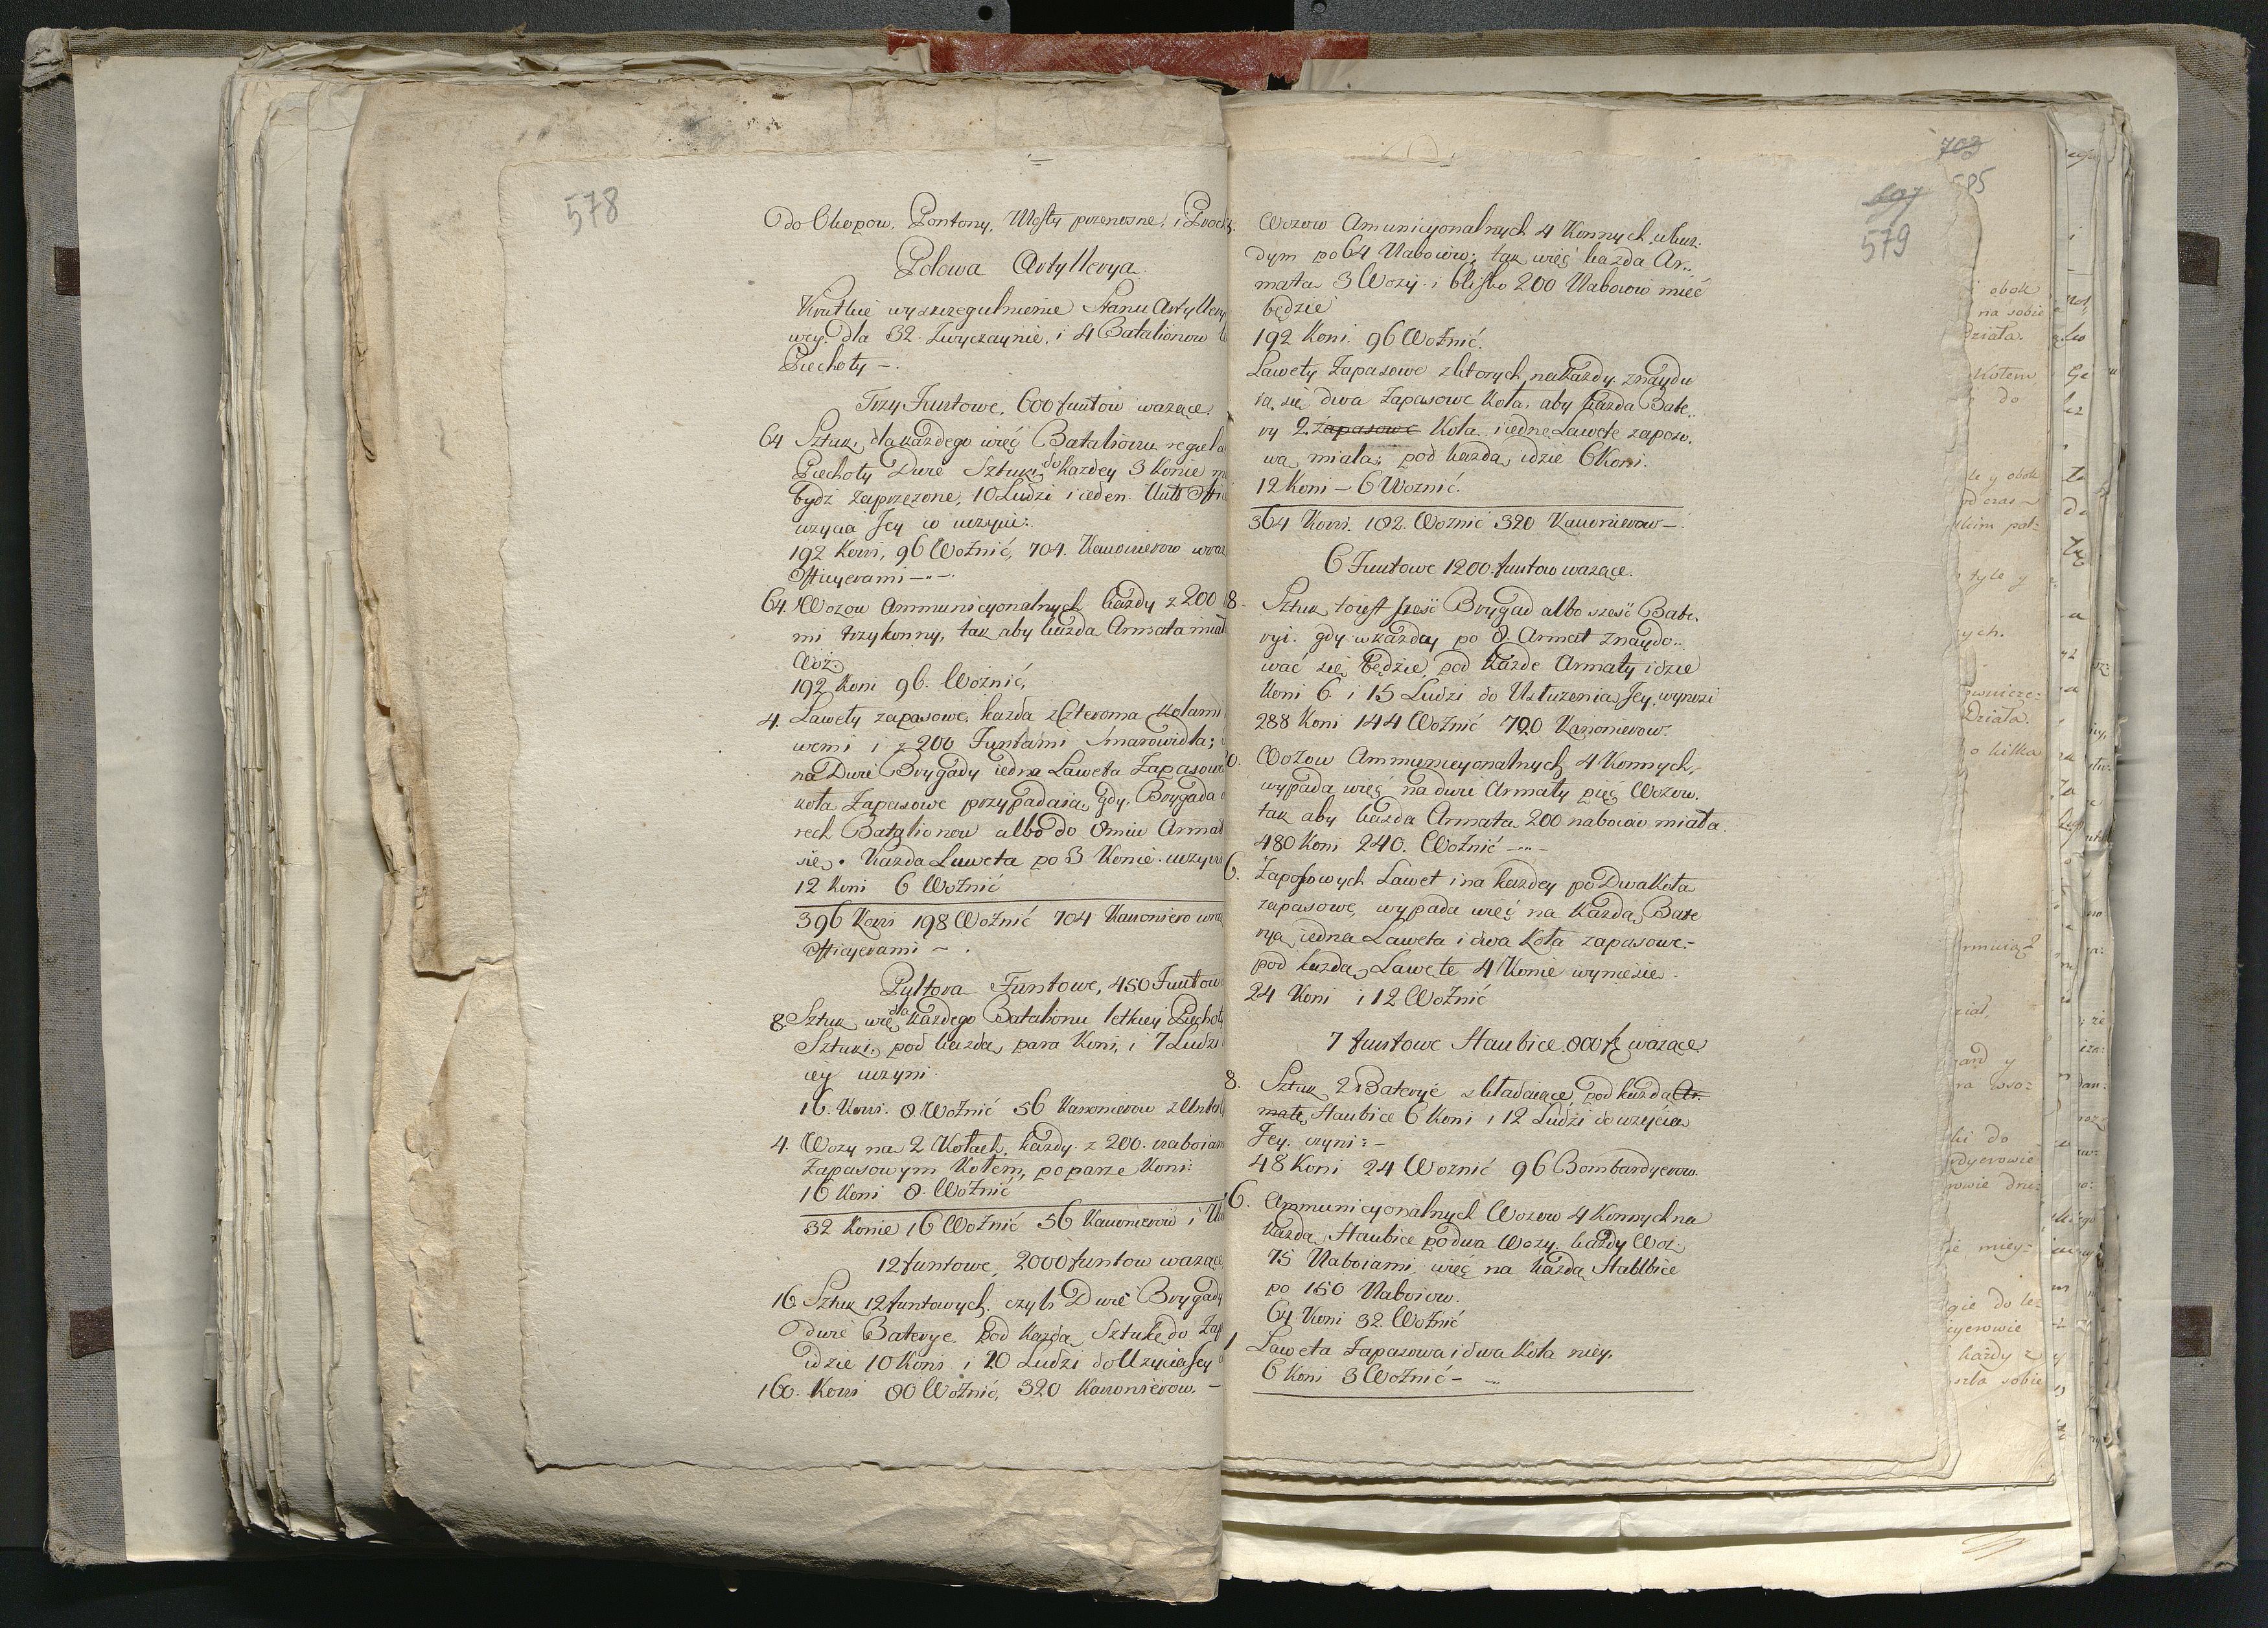 578
do Okopow, Pontony, Mosty przenosne, i
Polowa Artyllerya
Krutkie wyszczegulnienie Stanu Artyllery
wey. dla 32. Zwyczaynie, i 4 Batalionow
Piechoty –.
Trzy Funtowe, 600 funtow wazące.
64 Sztuk, dla każdego więc Batalionu regula
Piechoty Dwie Sztuki, do kazdey 3 Konie
bydz zaprzęzone, 10 Ludzi i ieden
uzycia Jey
192 Koni, 96 Woźnić, 704. Kanonierow wraz
Officyerami
64. Wozow Ammunicyonalnych każdy z 200
mi trzykonny, tak aby każda Armata miał
Woz.
192 Koni 96. Woźnić,
4. Lawety zapasowe, kazda z Czteroma Kołami
wemi i z 200 Funtami Smarowidła;
na Dwie Brygady iedna Laweta Zapasowa
koła Zapasowe przypadaią, gdy Brygada
rech Batalionow albo do 8miu Armat
się. Kazda Laweta po 3 Konie uczyni
12 Koni 6 Woźnić
396 Koni 198 Woźnić 704 Kanoniero wraz
Officyerami – .
Pułtora Funtowe, 450 Funtow
8. Sztuk więc dla każdego Batalionu letkiey Piechoty
Sztuki, pod każdą para Koni, i 7 Ludzi
iey uczyni
16. Koni. 8. Woźnić 56 Kanonierow z
4. Wozy na 2 Kołach, każdy z 200. naboiam
Zapasowym Kołem, po parze Koni:
16 Koni 8. Woźnić
32 Konie 16 Woźnić 56 Kanonierow i
12 funtowe, 2000 funtow wazące
16 Sztuk 12 funtowych, czyli Dwie Brygady
dwie Baterye. Pod Każdą Sztukę do Zap
idzie 10 Koni i 20 Ludzi do Uzycia Jey
160. Koni 80 Woźnić, 320 Kanonierow. –
703
585
697
579
Wozow Amunicyonalnych 4 Konnych,
dym po 64 Nabowow; tak więc każda Ar..
mata 3 Wozy i blisko 200 Nabowow mieć
będzie
192 Koni. 96 Woźnić.
Lawety Zapasowe z których na każdy znaydu
ią się dwa Zapasowe Koła, aby każda Bate..
ry 2 zapasowe Koła i iedne Lawete zapaso.
wą miała; pod każdą idzie 6 Koni.
12 Koni – 6 Woznić.
364 Koni. 182. Woznić 320 Kanonierow –.
6 Funtowe 1200 funtow wazące.
8. Sztuk to iest sześć Brygad albo sześć Bate.
ryi. gdy w kazdey po 8. Armat znaydo..
wać się będzie, pod każde Armaty idzie
Koni 6. i 15 Ludzi do Usłużenia Jey, wynosi
288 Koni 144 Woźnić 720 Kanonierow.
0. Wozow Ammunicyonalnych 4 Konnych,
wypada więc na dwie Armaty pięć Wozow.
tak aby każda Armata 200 nabowow miała.
480 Koni 240. Woźnić
6. Zapasowych Lawet i na kazdey po Dwa Koła
zapasowe, wypada więc na Każdą Bate
ryą iedna Laweta i dwa Koła zapasowe.–
pod każdą Lawęte 4 Konie wyniesie.
24 Koni i 12 Woźnić
7 funtowe Haubice. 800 f. wazące
8. Sztuk 2 Baterye składaiące, pod każdą Ar.
matę Haubice 6 Koni i 12 Ludzi do uzycia
Jey. czyni: –
48 Koni 24 Woznić 96 Bombardyerow.
6. Ammunicyonalnych Wozow 4 Konnych na
Każdą Haubice po dwa Wozy, każdy Woz
75 Naboiami, więc na każdą Haubice
po 150 Naboiow.
64 Koni 32. Woźnić
1 Laweta Zapasowa i dwa Koła niey.
6 Koni 3 Woźnić –
obok
na sobie
Działa.
Kołem
do
y obok
tyle y
Działa.
kilka